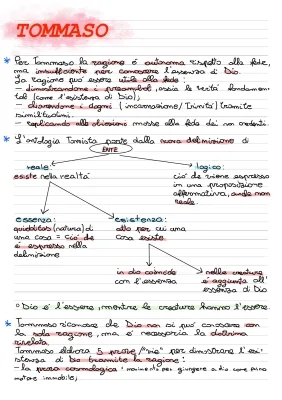 TOMMASO
* Per Tommaso la ragione è autonoma rispetto alla fede,
ma insufficiente per conoscere l'essenza di Dio.
La ragione può essere utile alla fede:
- dimostrandone i preamboli, ossia le verità fondamen-
tali (come l'esistenza di Dio);
- chiarendone i dogmi (incarnazione/Trinità) tramite
similitudini.
- replicando alle obiezioni mosse alla fede dai non credenti.
* L'ontologia Tomista parte dalla nuova definizione di
ENTE
reale:
esiste nella realtà
logico:
ciò che viene espresso
in una proposizione
affermativa, anche non
reale.
essenza:
quidditas (natura) di
una cosa = ciò che
è espresso nella
definizione
esistenza:
atto per cui una
cosa esiste
in dio coincide
con l'essenza
nelle creature
è aggiunta all'
essenza di Dio
Dio è l'essere, mentre le creature hanno l'essere
* Tommaso riconosce che Dio non si può conoscere con
la sola ragione, ma è necessaria la dottrina
rivelata.
Tommaso elabora 5 prove/"vie" per dimostrare l'esi-
stenza di Dio tramite la ragione:
- la prova cosmologica: movimento per giungere a dio come primo
motore immobile;